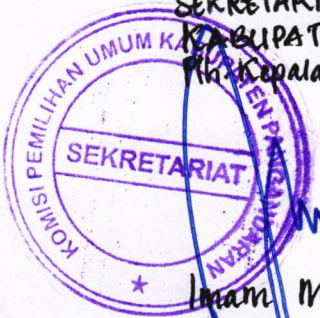 SEKRETARI
KABUPAT
Plh. Kepala
KOMISI PEMILIHAN UMUM KABUPATEN PANGANDARAN
SEKRETARIAT
Imam M